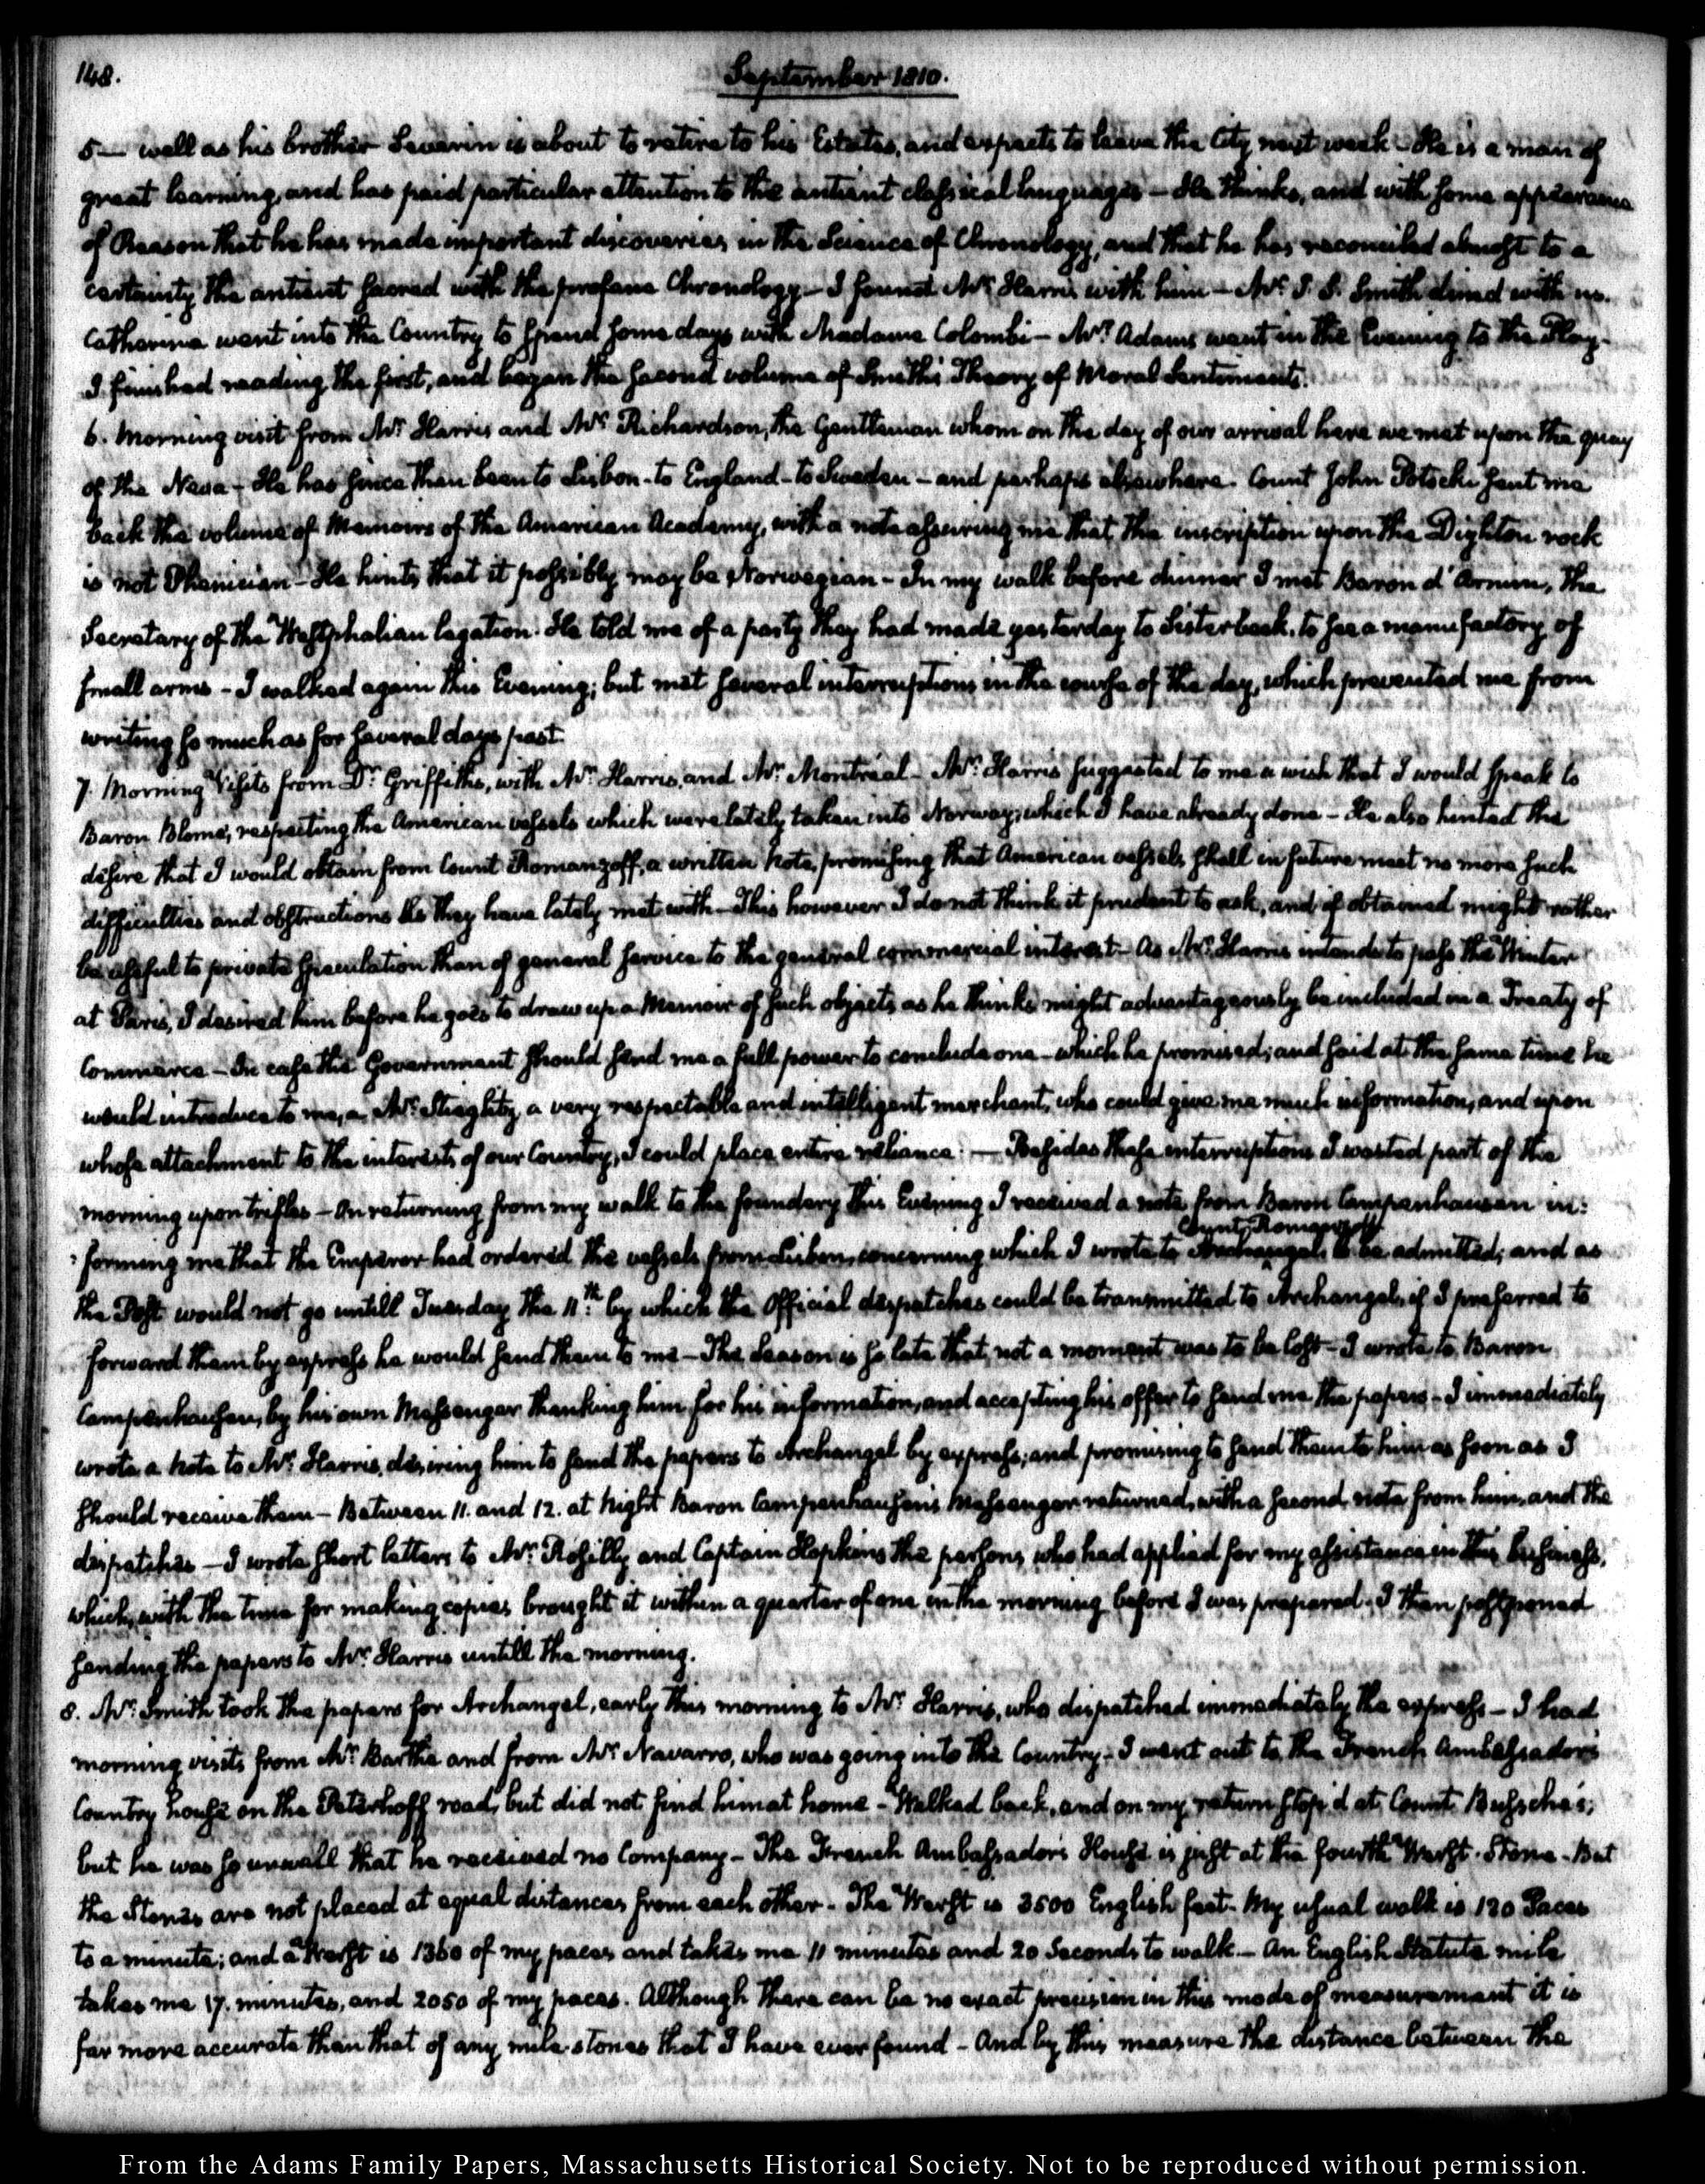 148.
September 1810.
5— well as his brother Severin is about to retire to his Estates, and expects to leave the City next week. He is a man of
great learning, and has paid particular attention to the antient classical languages — He thinks, and with some appearance
of Reason that he has made important discoveries in the Science of Chronology, and that he has reconciled almost to a
certainty the antient sacred with the profane Chronology — I found Mr Harris with him — Mr J. S. Smith dined with us.
Catherine went into the Country to spend some days with Madame Colombi — Mrs Adams went in the Evening to the Play.
I finished reading the first, and began the second volume of Smith's Theory of Moral Sentiments.
6. Morning visit from Mr Harris and Mr Richardson, the Gentleman whom on the day of our arrival here we met upon the quay
of the Neva — He has since then been to Lisbon — to England — to Sweden — and perhaps elsewhere. Count John Potocki sent me
back the volume of Memoirs of the American Academy, with a note assuring me that the inscription upon the Dighton rock
is not Phenician — He hints that it possibly may be Norwegian — In my walk before dinner I met Baron d'Armim, the
Secretary of the Westphalian legation. He told me of a party they had made yesterday to Sisterbeck, to see a manufactory of
small arms — I walked again this Evening; but met several interruptions in the course of the day, which prevented me from
writing so much as for several days past.
7. Morning Visits from Dr Griffiths, with Mr Harris, and Mr Montréal — Mr Harris suggested to me a wish that I would speak to
Baron Blome, respecting the American vessels which were lately taken into Norway; which I have already done — He also hinted the
desire that I would obtain from Count Romanzoff, a written Note, promising that American vessels shall in future meet no more such
difficulties and obstructions as they have lately met with — This however I do not think it prudent to ask, and if obtained might rather
be useful to private speculation than of general service to the general commercial interest — As Mr Harris intends to pass the Winter
at Paris, I desired him before he goes to draw up a Memoir of such objects as he thinks might advantageously be included in a Treaty of
Commerce — In case the Government should send me a full power to conclude one — which he promised; and said at the same time he
would introduce to me, a Mr Stieglitz, a very respectable and intelligent merchant, who could give me much information, and upon
whose attachment to the interests of our Country, I could place entire reliance. — Besides these interruptions I wasted part of the
morning upon trifles — On returning from my walk to the foundery this Evening I received a note from Baron Campenhausen in:
Count Romanzoff
:forming me that the Emperor had ordered the vessels from Lisbon, concerning which I wrote to Archangel, to be admitted; and as
the Post would not go untill Tuesday the 11th by which the Official dispatches could be transmitted to Archangel, if I preferred to
forward them by express he would send them to me — The Season is so late that not a moment was to be lost — I wrote to Baron
Campenhausen, by his own Messenger thanking him for his information, and accepting his offer to send me the papers — I immediately
wrote a Note to Mr Harris, desiring him to send the papers to Archangel by express; and promising to send them to him as soon as I
should receive them — Between 11. and 12. at Night Baron Campenhausen's Messenger returned, with a second note from him, and the
dispatches — I wrote short letters to Mr Rosilly and Captain Hopkins the persons who had applied for my assistance in this business,
which, with the time for making copies brought it within a quarter of one in the morning before I was prepared. I then postponed
sending the papers to Mr Harris untill the morning.
8. Mr Smith took the papers for Archangel, early this morning to Mr Harris, who dispatched immediately the express — I had
morning visits from Mr Barthe and from Mr Navarro, who was going into the Country — I went out to the French Ambassador's
Country house on the Peterhoff road, but did not find him at home — Walked back, and on my return stop'd at Count Bussche's;
but he was so unwell that he received no Company — The French Ambassador's House is just at the fourth Werst-Stone — But
the Stones are not placed at equal distances from each other — The Werst is 3500 English feet. My usual walk is 120 Paces
to a minute; and a Werst is 1360 of my paces and takes me 11 minutes and 20 Seconds to walk — An English Statute mile
takes me 17. minutes, and 2050 of my paces. Although there can be no exact precision in this mode of measurement it is
far more accurate than that of any mile stones that I have ever found — And by this measure the distance between the
From the Adams Family Papers, Massachusetts Historical Society. Not to be reproduced without permission.